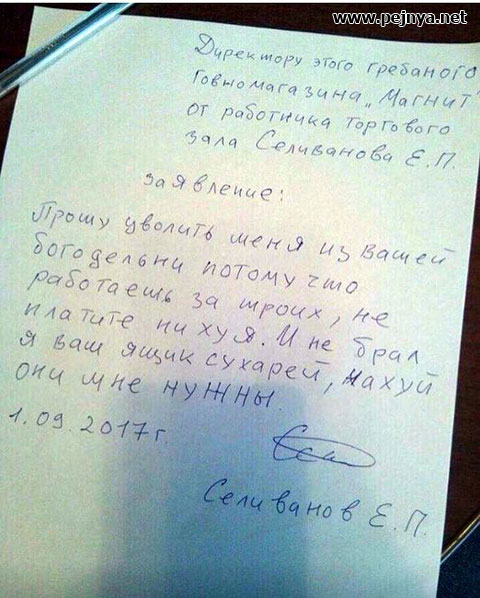 www.pejnya.net
Директору этого гребаного
Говномагазина „Магнит"
от работника торгового
зала Селиванова Е.П.
заявление:
Прошу уволить меня из вашей
богодельни потому что
работаешь за троих, не
платите ни хуя. И не брал
я ваш ящик сухарей, нахуй
они мне нужны.
1.09.2017г.
Селиванов Е.П.